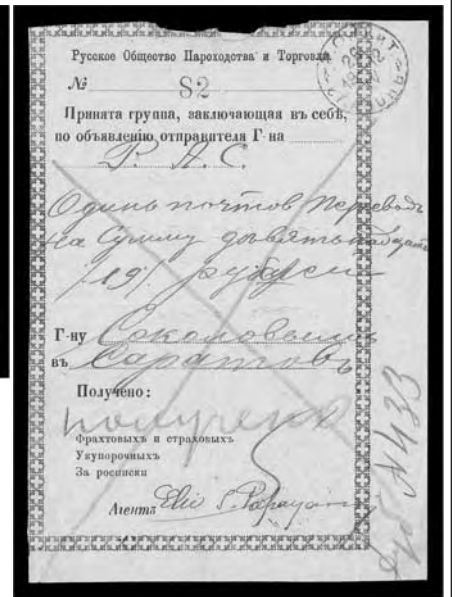 Русское Общество Пароходства и Торговли.
№ 82
Принята группа, заключающая въ себѣ,
по объявленію отправителя Г-на
Р. А. С.
Одинъ почтов переводъ
на Сумму девятнадцать
/19/ рублей
Г-ну Соколовымъ
въ Саратовъ
Получено:
получено
Фрахтовыхъ и страховыхъ
Укупорочныхъ
За росписки
Агентъ Elie S. Papayan
№ 433